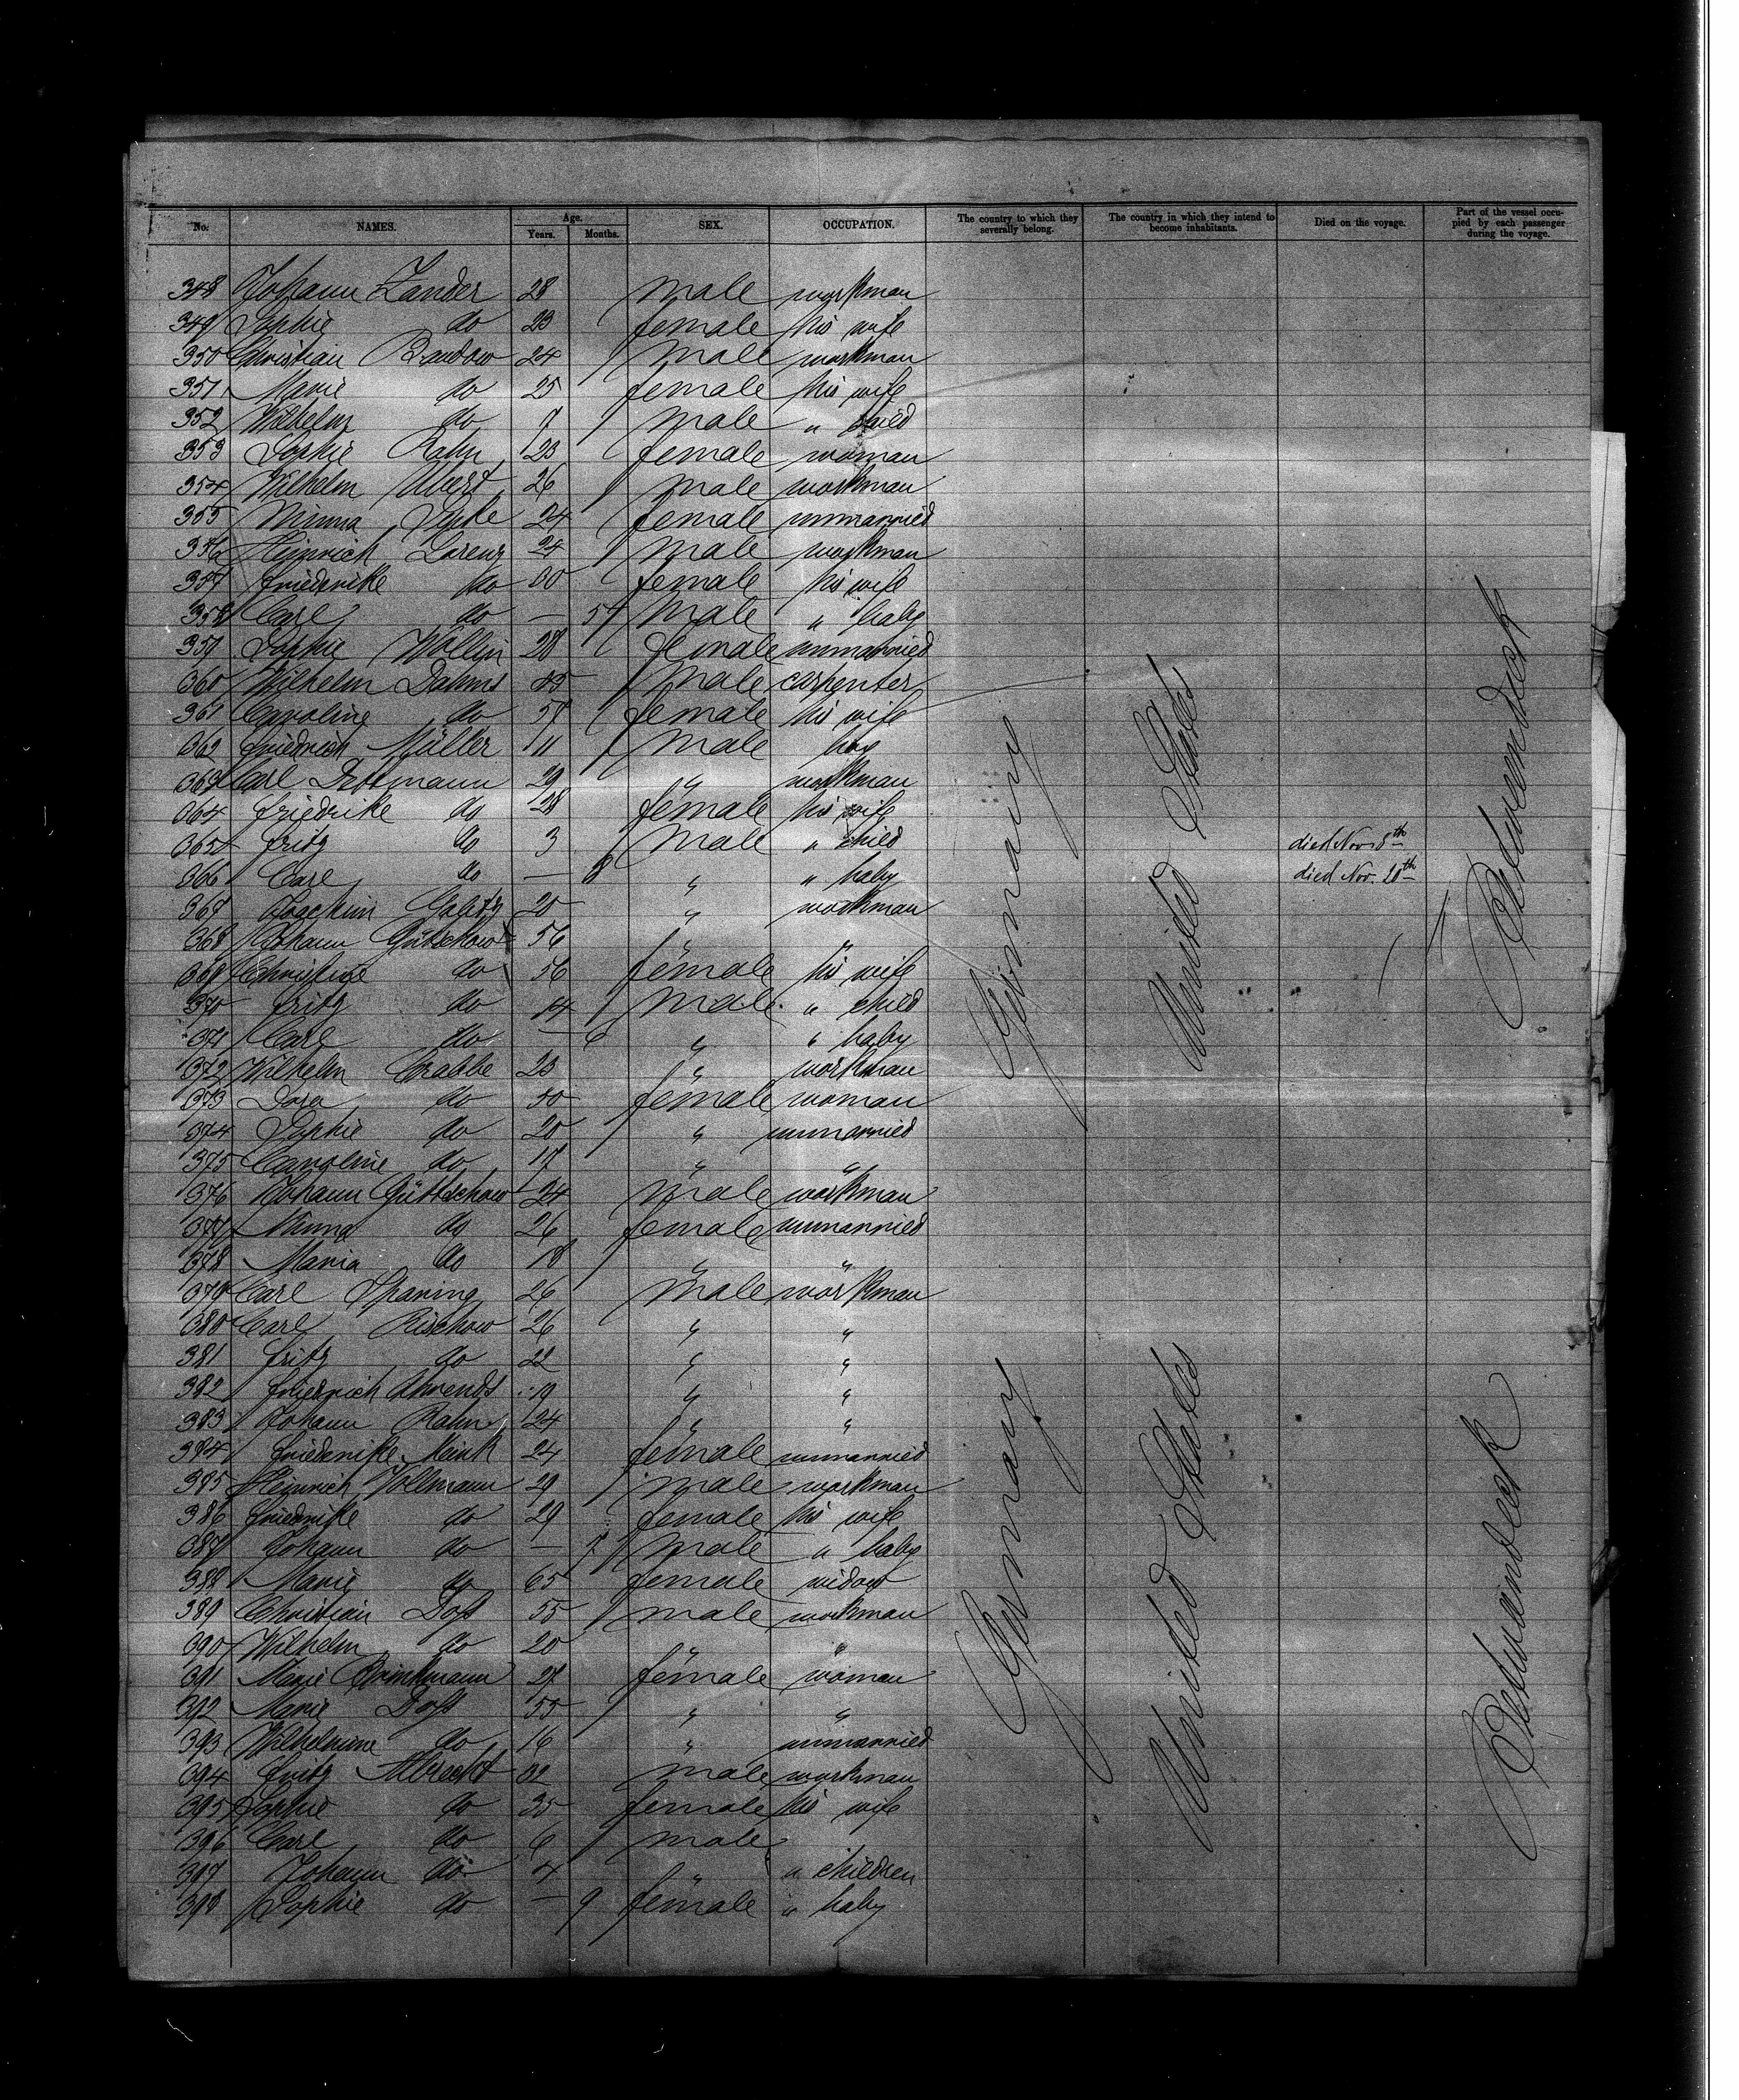 No. NAMES. Age. Years. Months. SEX. OCCUPATION. The country to which they severally belong. The country in which they intend to become inhabitants. Died on the voyage. Part of the vessel occupied by each passenger during the voyage.
348 Johann Zander 28 male workman
349 Sophie do 23 female his wife
350 Christian Bandow 24 male workman
351 Marie do 25 female his wife
352 Wilhelm do male " child
353 Sophie Rahn 23 female woman
354 Wilhelm 26 male workman
355 Minna 24 female unmarried
356 Heinrich Lorenz 24 male workman
357 Friederike do female his wife
358 Carl do — male " baby
359 Sophie Wollin 28 female unmarried
360 Wilhelm Dahms male carpenter
361 Caroline do female his wife
362 Friedrich Müller 11 male boy
363 Carl Dettmann 29 " workman
364 Friedrike do 28 female his wife
365 Fritz do 3 male " child died Nov 8th
366 Carl do — 8 " " baby died Nov. 20th
367 Joachim 20 " workman
368 Johann Güttschow 56 " "
369 Christine do 56 female his wife
370 Fritz do 14 male " child
371 Carl do — 6 " " baby
372 Wilhelm Crabbe 23 " workman
373 do 50 female woman
374 Sophie do 20 " unmarried
375 Caroline do 17 " "
376 Johann Güttschow 24 male workman
377 Minna do 26 female unmarried
378 Maria do 18 " "
379 Carl 26 male workman
380 Carl Rischow 26 " "
381 Fritz do 22 " "
382 Friedrich Ahrends 19 " "
383 Johann Rahn 24 " "
384 Friederike Meink 24 female unmarried
385 Heinrich Vollmann 29 male workman
386 Friedrike do 29 female his wife
387 Johann do — male " baby
388 Marie do 65 female widow
389 Christian 55 male workman
390 Wilhelm do 20 " "
391 Marie Brinkmann 27 female woman
392 Marie 55 " "
393 Wilhelmine do 16 " unmarried
394 Fritz Albrecht 32 male workman
395 Sophie do 35 female his wife
396 Carl do 6 male
397 Johann do 4 " " children
398 Sophie do — 9 female " baby
Germany
United States
Betweendeck
Germany
United States
Betweendeck